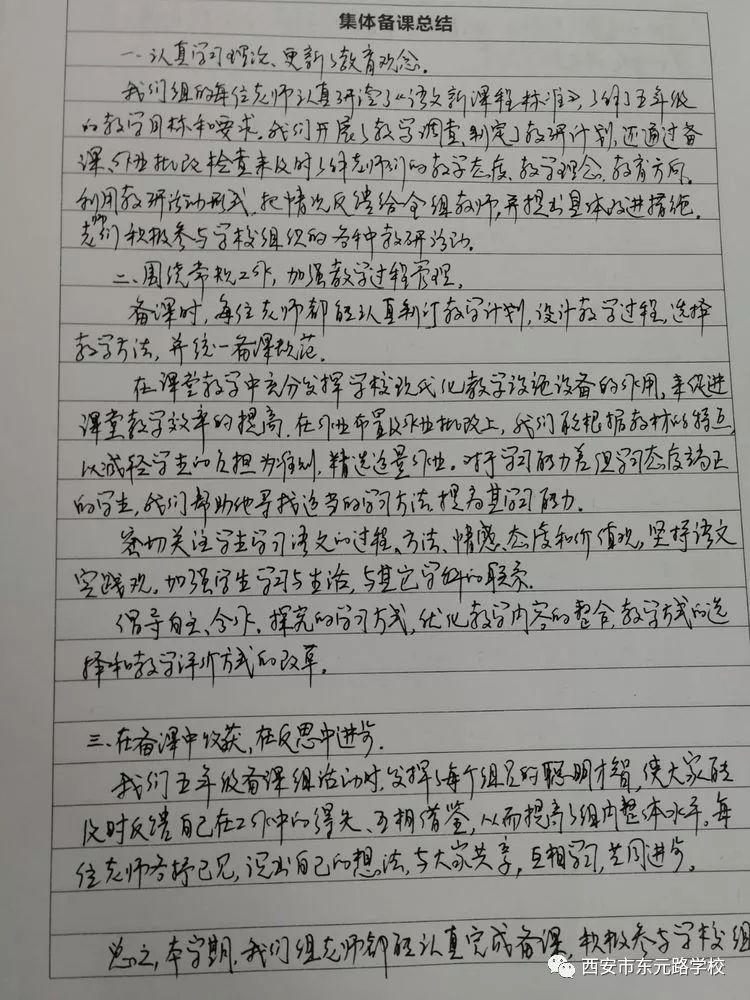 集体备课总结
一、认真学习理论、更新了教育观念。
我们组的每位老师认真研读了《语文新课程标准》,了解了五年级
的教学目标和要求。我们开展了教学调查,制定了教研计划,还通过备
课、作业批改检查来及时了解老师们的教学态度、教学理念、教育方向。
利用教研活动形式,把情况反馈给全组教师,并提出具体改进措施。
老师们积极参与学校组织的各种教研活动。
二、围绕常规工作,加强教学过程管理。
备课时,每位老师都能认真制订教学计划,设计教学过程,选择
教学方法,并统一备课规范。
在课堂教学中充分发挥学校现代化教学设施设备的作用,来促进
课堂教学效率的提高。在作业布置及作业批改上,我们能根据教材的特点,
以减轻学生的负担为准则,精选适量作业。对于学习能力差但学习态度端正
的学生,我们帮助他寻找适当的学习方法,提高其学习能力。
密切关注学生学习语文的过程、方法、情感、态度和价值观,坚持语文
实践观,加强学生学习与生活,与其它学科的联系。
倡导自主、合作、探究的学习方式,优化教学内容的整合,教学方式的选
择和教学评价方式的改革。
三、在备课中收获,在反思中进步。
我们五年级备课组活动时,发挥了每个组员的聪明才智,使大家能
及时反馈自己在工作中的得失、互相借鉴,从而提高了组内整体水平。每
位老师各抒己见,说出自己的想法,与大家共享,互相学习,共同进步。
总之,本学期,我们组老师都能认真完成备课,积极参与学校组
西安市东元路学校